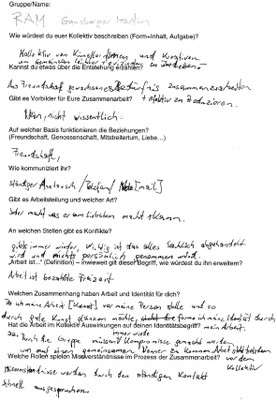 Gruppe/Name:
RAM Gensberger Martin
Wie würdest du euer Kollektiv beschreiben (Form=Inhalt, Aufgabe)?
Kollektiv von KünstlerInnen und Kreativen,
um gemeinsam leichter zu
Kannst du etwas über die Entstehung erzählen?
Aus Freundschaft gewachsenes Bedürfnis zusammenzuarbeiten
+ effektiver zu Produzieren.
Gibt es Vorbilder für Eure Zusammenarbeit?
Nein, nicht wissentlich.
Auf welcher Basis funktionieren die Beziehungen?
(Freundschaft, Genossenschaft, Mitstreitertum, Liebe…)
Freundschaft,
Wie kommuniziert ihr?
ständiger Austausch / Telefon / [mail]
Gibt es Arbeitsteilung und welcher Art?
Jeder macht was er am liebsten macht
An welchen Stellen gibt es Konflikte?
gibts immer wieder, Wichtig ist das alles sachlich abgehandelt
wird und nichts persönlich genommen wird.
„Arbeit ist..." (Definition) – inwieweit gilt dieser Begriff, wie würdest du ihn erweitern?
Arbeit ist bezahlte Freizeit
Welchen Zusammenhang haben Arbeit und Identität für dich?
Da ich meine Arbeit [Kunst] vor meine Person stelle und so
durch gute Kunst glänzen möchte, forme ich meine Identität durch
meine Arbeit.
Hat die Arbeit im Kollektiv Auswirkungen auf deinen Identitätsbegriff?
Ja. Durch die Gruppe müssen immer wieder Kompromisse gemacht werden
um auf einen gemeinsamen Nenner zu kommen
Kollektiv
Welche Rollen spielen Missverständnisse im Prozess der Zusammenarbeit?
Missverständnisse werden durch den ständigen Kontakt
schnell ausgesprochen.